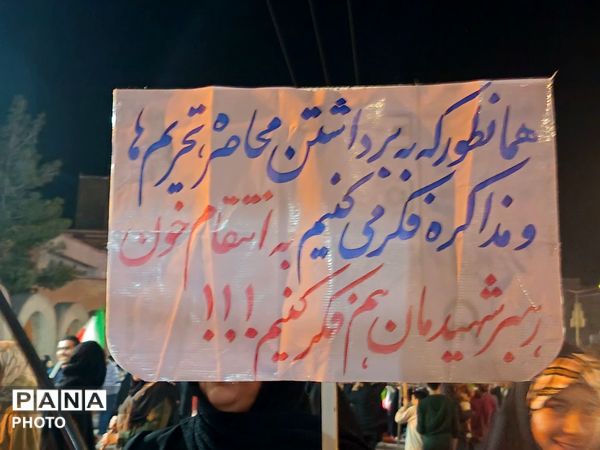 همانطور که به برداشتن محاصره، تحریم ها
و مذاکره فکر می کنیم به انتقام خون
رهبر شهیدمان هم فکر کنیم!!!
PANA
PHOTO